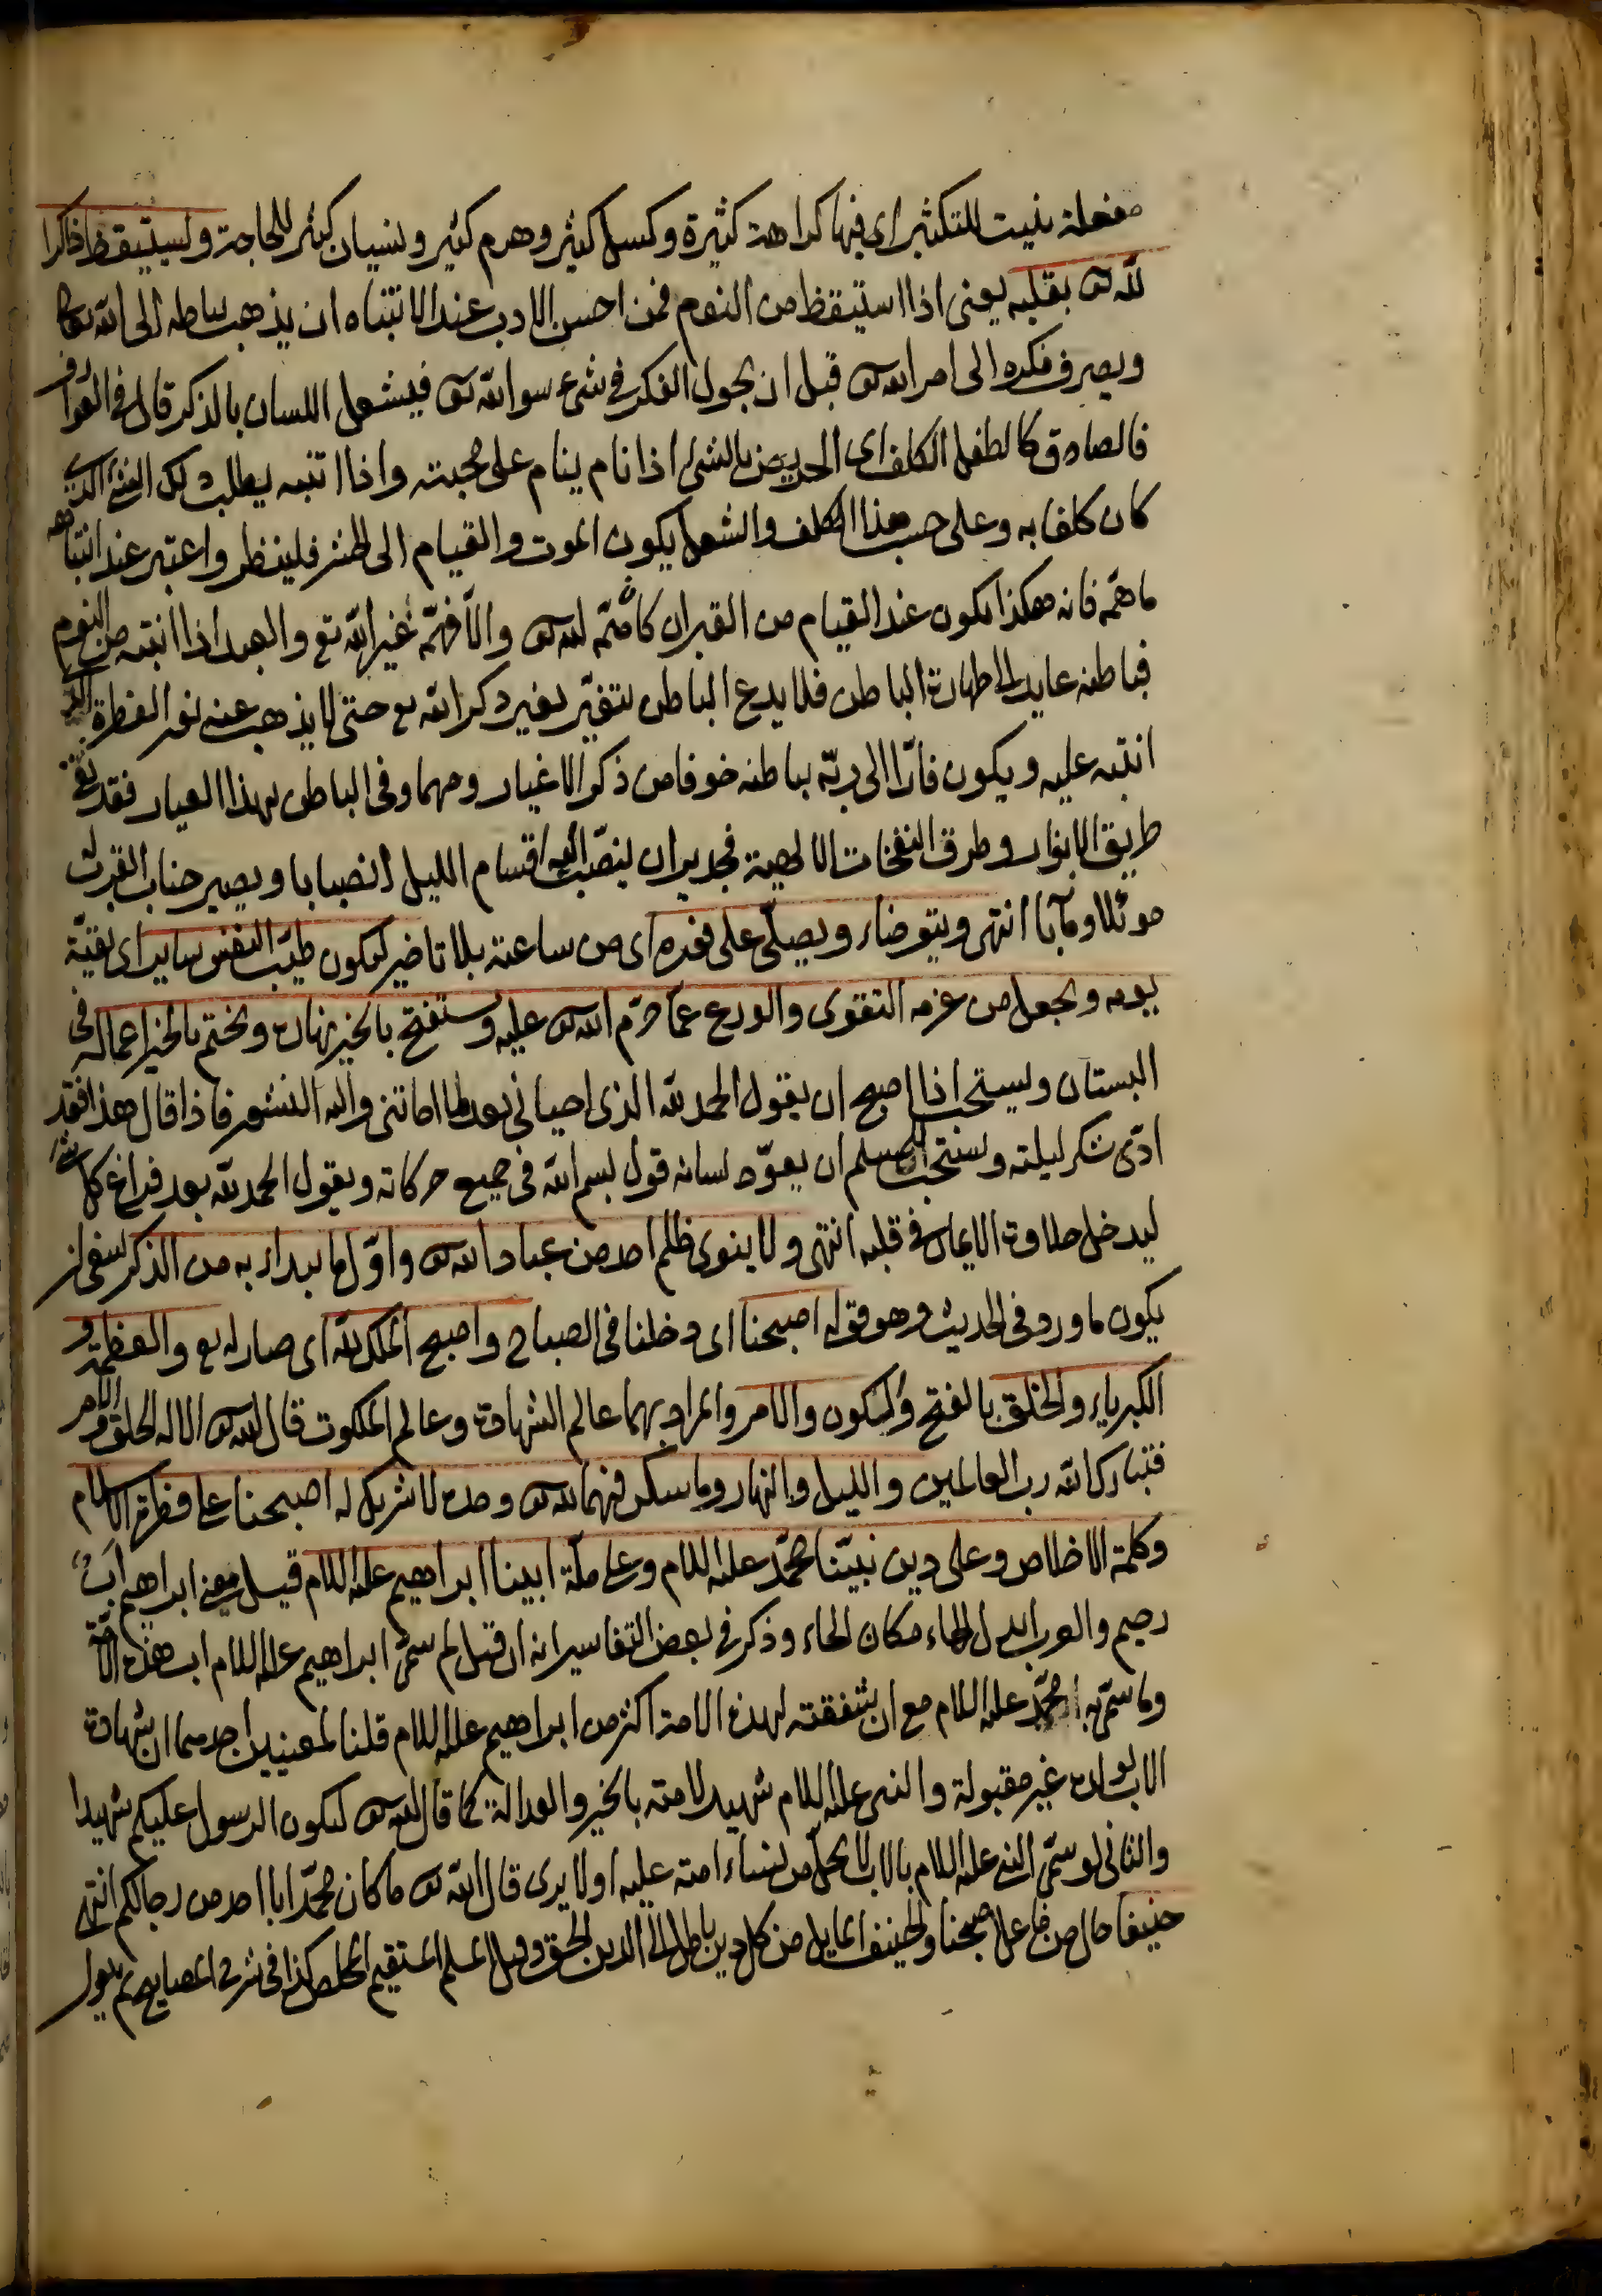 مفعلة بنيت للتكثير اى فيها كراهة كثيرة وكسل كثير وهرم كثير ونسيان كثير للحاجة ويستيقظ ذاكرا
لله تع بقلبه يعنى اذا استيقظ من النوم فمن احسن الادب عند الانتباه ان يذهب بباطنه الى الله تعالى
ويصرف فكره الى امر الله تع قبل ان يجول الفكر فى شئ سوى الله تع فيشغل اللسان بالذكر قال فى العوارف
فالصادق كالطفل الكلف اى الحريص بالشئ اذا نام ينام على محبته واذا انتبه يطلب ذلك الشئ الذى
كان كلفا به وعلى حسب هذا الكلف والشغل يكون الموت والقيام الى الحشر فلينظر واعتبر عند انتباهه
ما همّه فانه هكذا يكون عند القيام من القبر ان كان همّه لله تع والّا فهمّه غير الله تع والعبد اذا انتبه من النوم
فباطنه عايد الى طهارة الباطن فلا يدع الباطن يتغيّر بغير ذكر الله تع حتى لا يذهب عنه نور الفطرة الذى
انتبه عليه ويكون فارّا الى ربّه بباطنه خوفا من ذكر الاغيار ومهما وفى الباطن بهذا العيار فقد نقى
طريق الانوار وطرق النفحات الالهية فجدير ان ينصبّ اليه اقسام الليل انصبابا ويصير جناب القرب له
موئلا ومآبا انتهى ويتوضاء ويصلّى على فوره اى من ساعته بلا تاخير ليكون طيّب النفس ساير اى بقيّة
يومه ويجعل من عزمه التقوى والورع عمّا حرّم الله تع عليه ويستفتح بالخير نهاره ويختم بالخير اعماله فى
البستان ويستحب اذا اصبح ان يقول الحمد لله الذى احيانى بعد ما اماتنى واليه النشور فاذا قال هذا فقد
ادّى شكر ليلته ويستحب للمسلم ان يعوّد لسانه قول بسم الله فى جميع حركاته ويقول الحمد لله بعد فراغ كل شئ
ليدخل حلاوة الايمان فى قلبه انتهى ولا ينوى ظلم احد من عباد الله تع واوّل ما يبداء به من الذكر ينبغى ان
يكون ما ورد فى الحديث وهو قوله اصبحنا اى دخلنا فى الصباح واصبح الملك لله اى صار له تع والعظمة و
الكبرياء والخلق بالفتح والسكون والامر والمراد بهما عالم الشهادة وعالم الملكوت قال الله تع الا له الخلق والامر
فتبارك الله رب العالمين والليل والنهار وما سكن فيهما لله تع وحده لا شريك له اصبحنا على فطرة الاسلام
وكلمة الاخلاص وعلى دين نبيّنا محمّد عليه السلام وعلى ملّة ابينا ابراهيم عليه السلام قيل معنى ابراهيم اب
رحيم والعرب ابدل الهاء مكان الحاء وذكر فى بعض التفاسير انه ان قيل لم سمّى ابراهيم عليه السلام اب هذه الامّة
وما سمّى به محمّد عليه السلام مع ان شفقته لهذه الامة اكثر من ابراهيم عليه السلام قلنا لمعنيين احدهما ان شهادة
الاب لولده غير مقبولة والنبى عليه السلام شهيد لامته بالخير والعدالة كما قال الله تع ليكون الرسول عليكم شهيدا
والثانى لو سمّى النبى عليه السلام بالاب لا يحلّ من نساء امته عليه اولا يرى قال الله تع ما كان محمّد ابا احد من رجالكم انتهى
حنيفا حال من فاعل اصبحنا والحنيف المايل من كل دين باطل الى الدين الحق وقيل المسلم المستقيم المخلص كذا فى شرح المصابيح ثم يقول